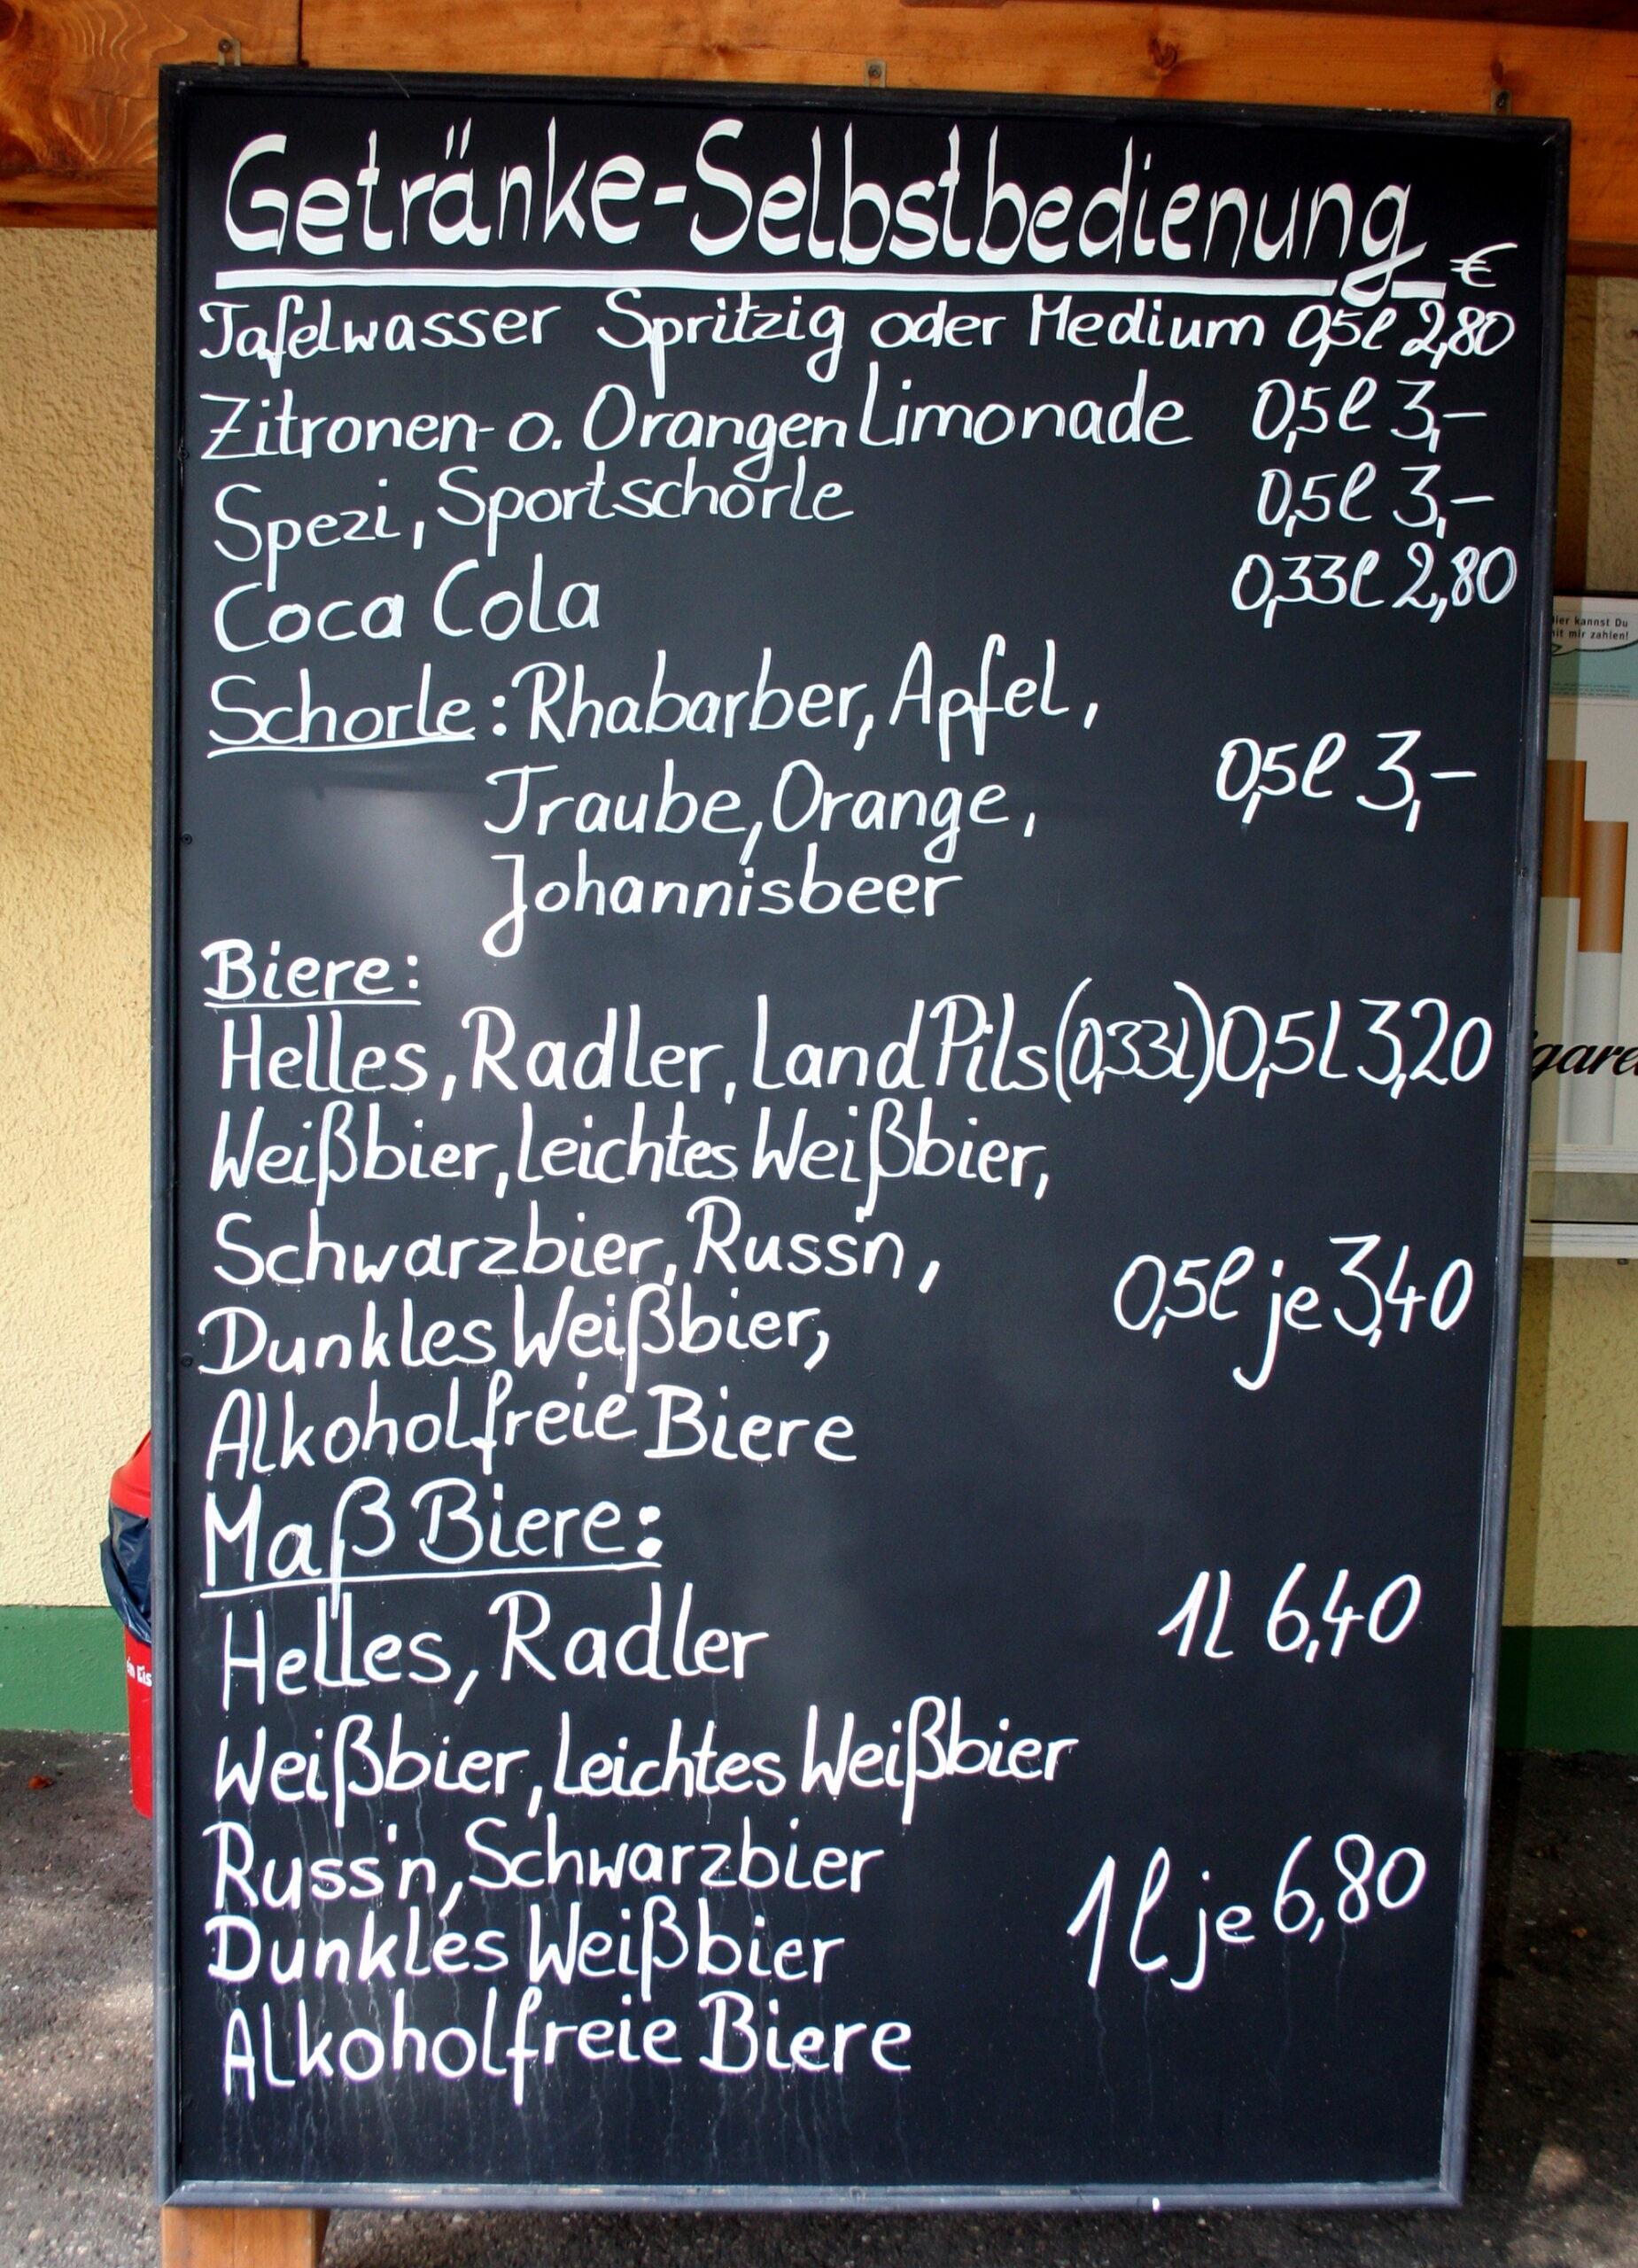 Getränke-Selbstbedienung
€
Tafelwasser Spritzig oder Medium 0,5l 2,80
Zitronen- o. Orangen Limonade 0,5l 3,-
Spezi, Sportschorle 0,5l 3,-
Coca Cola 0,33l 2,80
Schorle: Rhabarber, Apfel,
Traube, Orange, 0,5l 3,-
Johannisbeer
Biere:
Helles, Radler, Land Pils (0,33l) 0,5l 3,20
Weißbier, leichtes Weißbier,
Schwarzbier, Russn,
Dunkles Weißbier, 0,5l je 3,40
Alkoholfreie Biere
Maß Biere:
Helles, Radler 1l 6,40
Weißbier, Leichtes Weißbier
Russ'n, Schwarzbier
Dunkles Weißbier 1l je 6,80
Alkoholfreie Biere
kannst Du
mir zahlen!